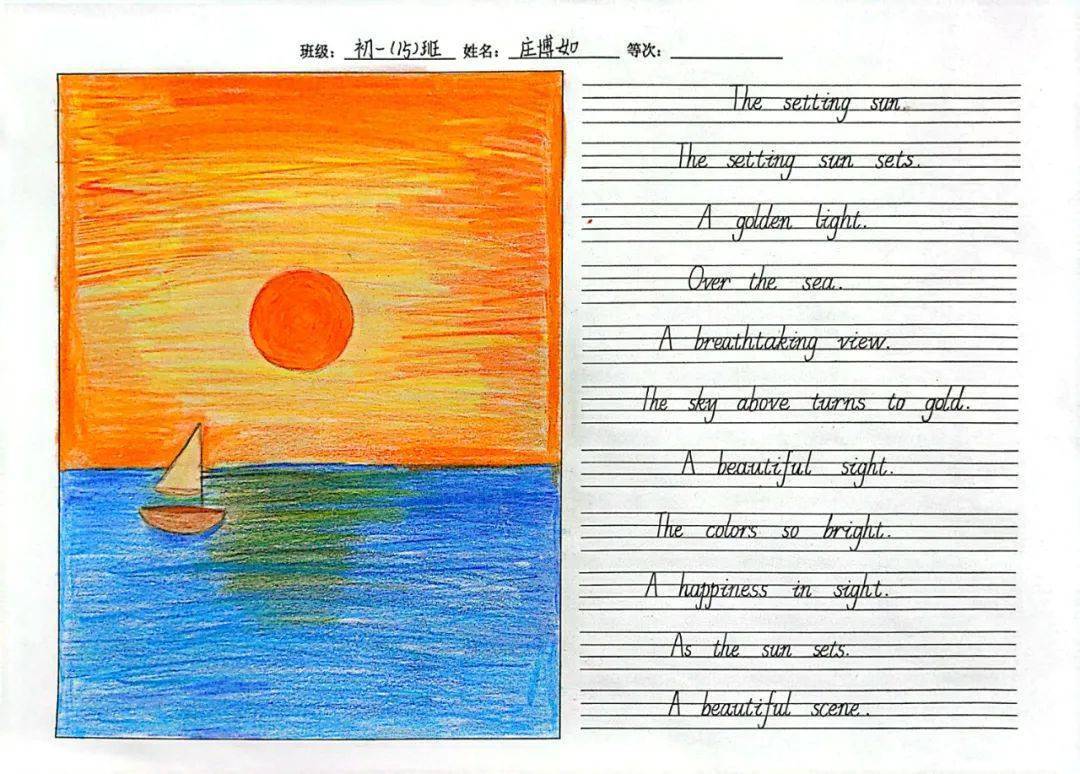 班级: 初一(15)班 姓名: 庄博如 等次:
The setting sun.
The setting sun sets.
A golden light.
Over the sea.
A breathtaking view.
The sky above turns to gold.
A beautiful sight.
The colors so bright.
A happiness in sight.
As the sun sets.
A beautiful scene.